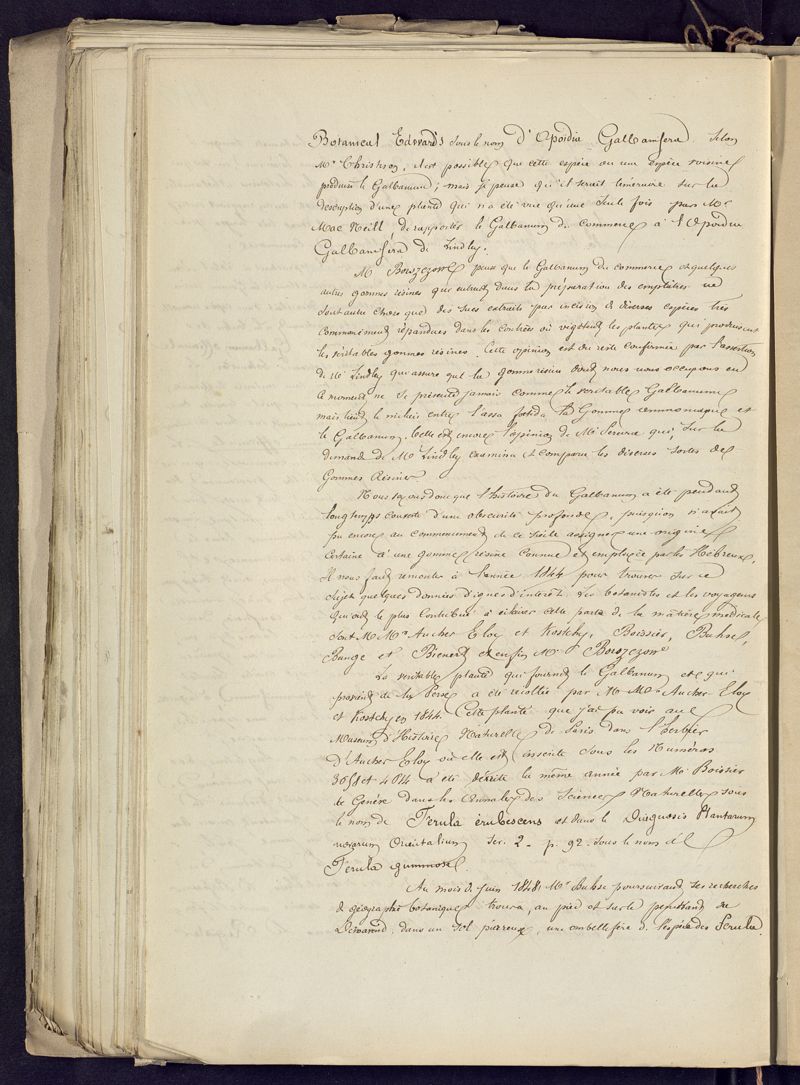 Botanical Edward's sous le nom d'Opoidia Galbanifera. Selon
Mr Christison, il est possible que cette espèce ou une espèce voisine
produise le Galbanum; mais je pense qu'il serait téméraire sur la
description d'une plante qui n'a été vue qu'une seule fois par Mr
Mac Neill, de rapporter le Galbanum du commerce à l'Opoidia
Galbanifera de Lindley.
Mr Borszczow pense que le Galbanum du commerce et quelques
autres gommes résines qui entrent dans la préparation des emplâtres ne
sont autre chose que des sucs extraits par incision de diverses espèces très
communément répandues dans les contrées où végètent les plantes qui produisent
les véritables gommes résines. Cette opinion est du reste confirmée par l'assertion
de Mr Lindley qui assure que la gomme résine dont nous nous occupons en
ce moment ne se présente jamais comme le véritable Galbanum
mais tient le milieu entre l'assa foetida la Gomme ammoniaque et
le Galbanum. Telle est encore l'opinion de Mr Pereira qui, sur la
demande de Mr Lindley examina et compara les diverses sortes de
Gommes Résines
Nous voyons donc que l'histoire du Galbanum a été pendant
longtemps couverte d'une obscurité profonde, puisqu'on n'avait
pu encore au commencement de ce siècle assigner une origine
certaine à une gomme résine connue et employée par les Hébreux.
Il nous faut remonter à l'année 1844 pour trouver sur ce
sujet quelques données dignes d'intérêt. Les botanistes et les voyageurs
qui ont le plus contribué à éclairer cette partie de la matière médicale
sont M Mrs Aucher Eloy et Kostchy, Boissier, Buhse,
Bunge et Bienert et enfin Mr Borszczow
La véritable plante qui fournit le Galbanum et qui
provient de la Perse a été récoltée par Mr Mrs Aucher Eloy
et Kostchy en 1844. Cette plante que j'ai pu voir au
Museum d'Histoire Naturelle de Paris dans l'herbier
d'Aucher Eloy où elle est inscrite sous les Numéros
3058 et 4614 a été décrite la même année par Mr Boissier
de Genève dans les Annales des Sciences Naturelles sous
le nom de Ferula erubescens et dans le Diagnosis Plantarum
novarum Orientalium Ser. 2 - p. 92. sous le nom de
Ferula gummosa.
Au mois de juin 1848 Mr Buhse poursuivant ses recherches
de géographie botanique trouva, au pied et sur le penchant du
Démavend, dans un sol pierreux, une ombellifère de l'espèce des Ferula.